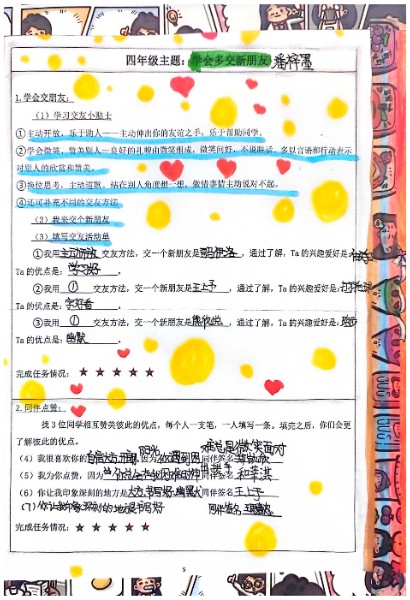 四年级主题：学会多交新朋友
1. 学会交友：
（1）学习交友小贴士
①主动开放，乐于助人——主动伸出你的友谊之手，乐于帮助同学。
②学会微笑，赞美别人——良好的礼貌由微笑组成，微笑问好，不说脏话，多以言语和行动表示
对别人的欣赏和赞美。
③换位思考，主动道歉，站在别人角度想一想，做错事情主动说对不起。
④还可补充不同的交友方法
（2）我来交个新朋友
（3）填写交友活动单
①我用主动开放交友方法，交一个新朋友是，通过了解，Ta 的兴趣爱好是
Ta 的优点是：学习好。
②我用①交友方法，交一个新朋友是王上予，通过了解，Ta 的兴趣爱好是：打
Ta 的优点是：字好看。
③我用①交友方法，交一个新朋友是，通过了解，Ta 的兴趣爱好是：
Ta 的优点是：幽默。
完成任务情况：★ ★ ★ ★ ★
2. 同伴点赞：
找 3 位同学相互赞美彼此的优点，每个人一支笔，一人填写一条。填完之后，你们会更
了解彼此的优点。
阳光 难总是微笑面对
（4）我很喜欢你的自信大方开朗，因为你遇到困同伴签名
（5）我为你点赞，因为同伴签名
（6）你让我印象深刻的地方是大方书写好幽默同伴签名王上予
（7）你让我印象深刻的地方是书写好 同伴签名
完成任务情况：★ ★ ★ ★ ★
5